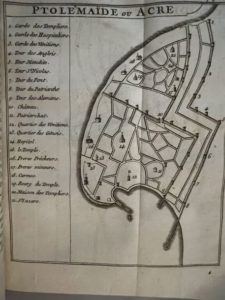 PTOLEMAÏDE OU ACRE
1. Garde des Templiers.
2. Garde des Hospitaliers
3. Garde des Venitiens
4. Tour des Anglois
5. Tour Maudite.
6. Tour S. Nicolas.
7. Tour du Pont.
8. Tour du Patriarche
9. Tour des Alemans.
10. Château.
11. Patriarchat.
12. Quartier des Venitiens
13. Quartier des Genois.
14. Hopital
15. le Temple.
16. Freres Prêcheurs.
17. Freres mineurs.
18. Carmes.
19. Bourg du Temple.
20. Maison des Templiers.
21. S. Lazare.